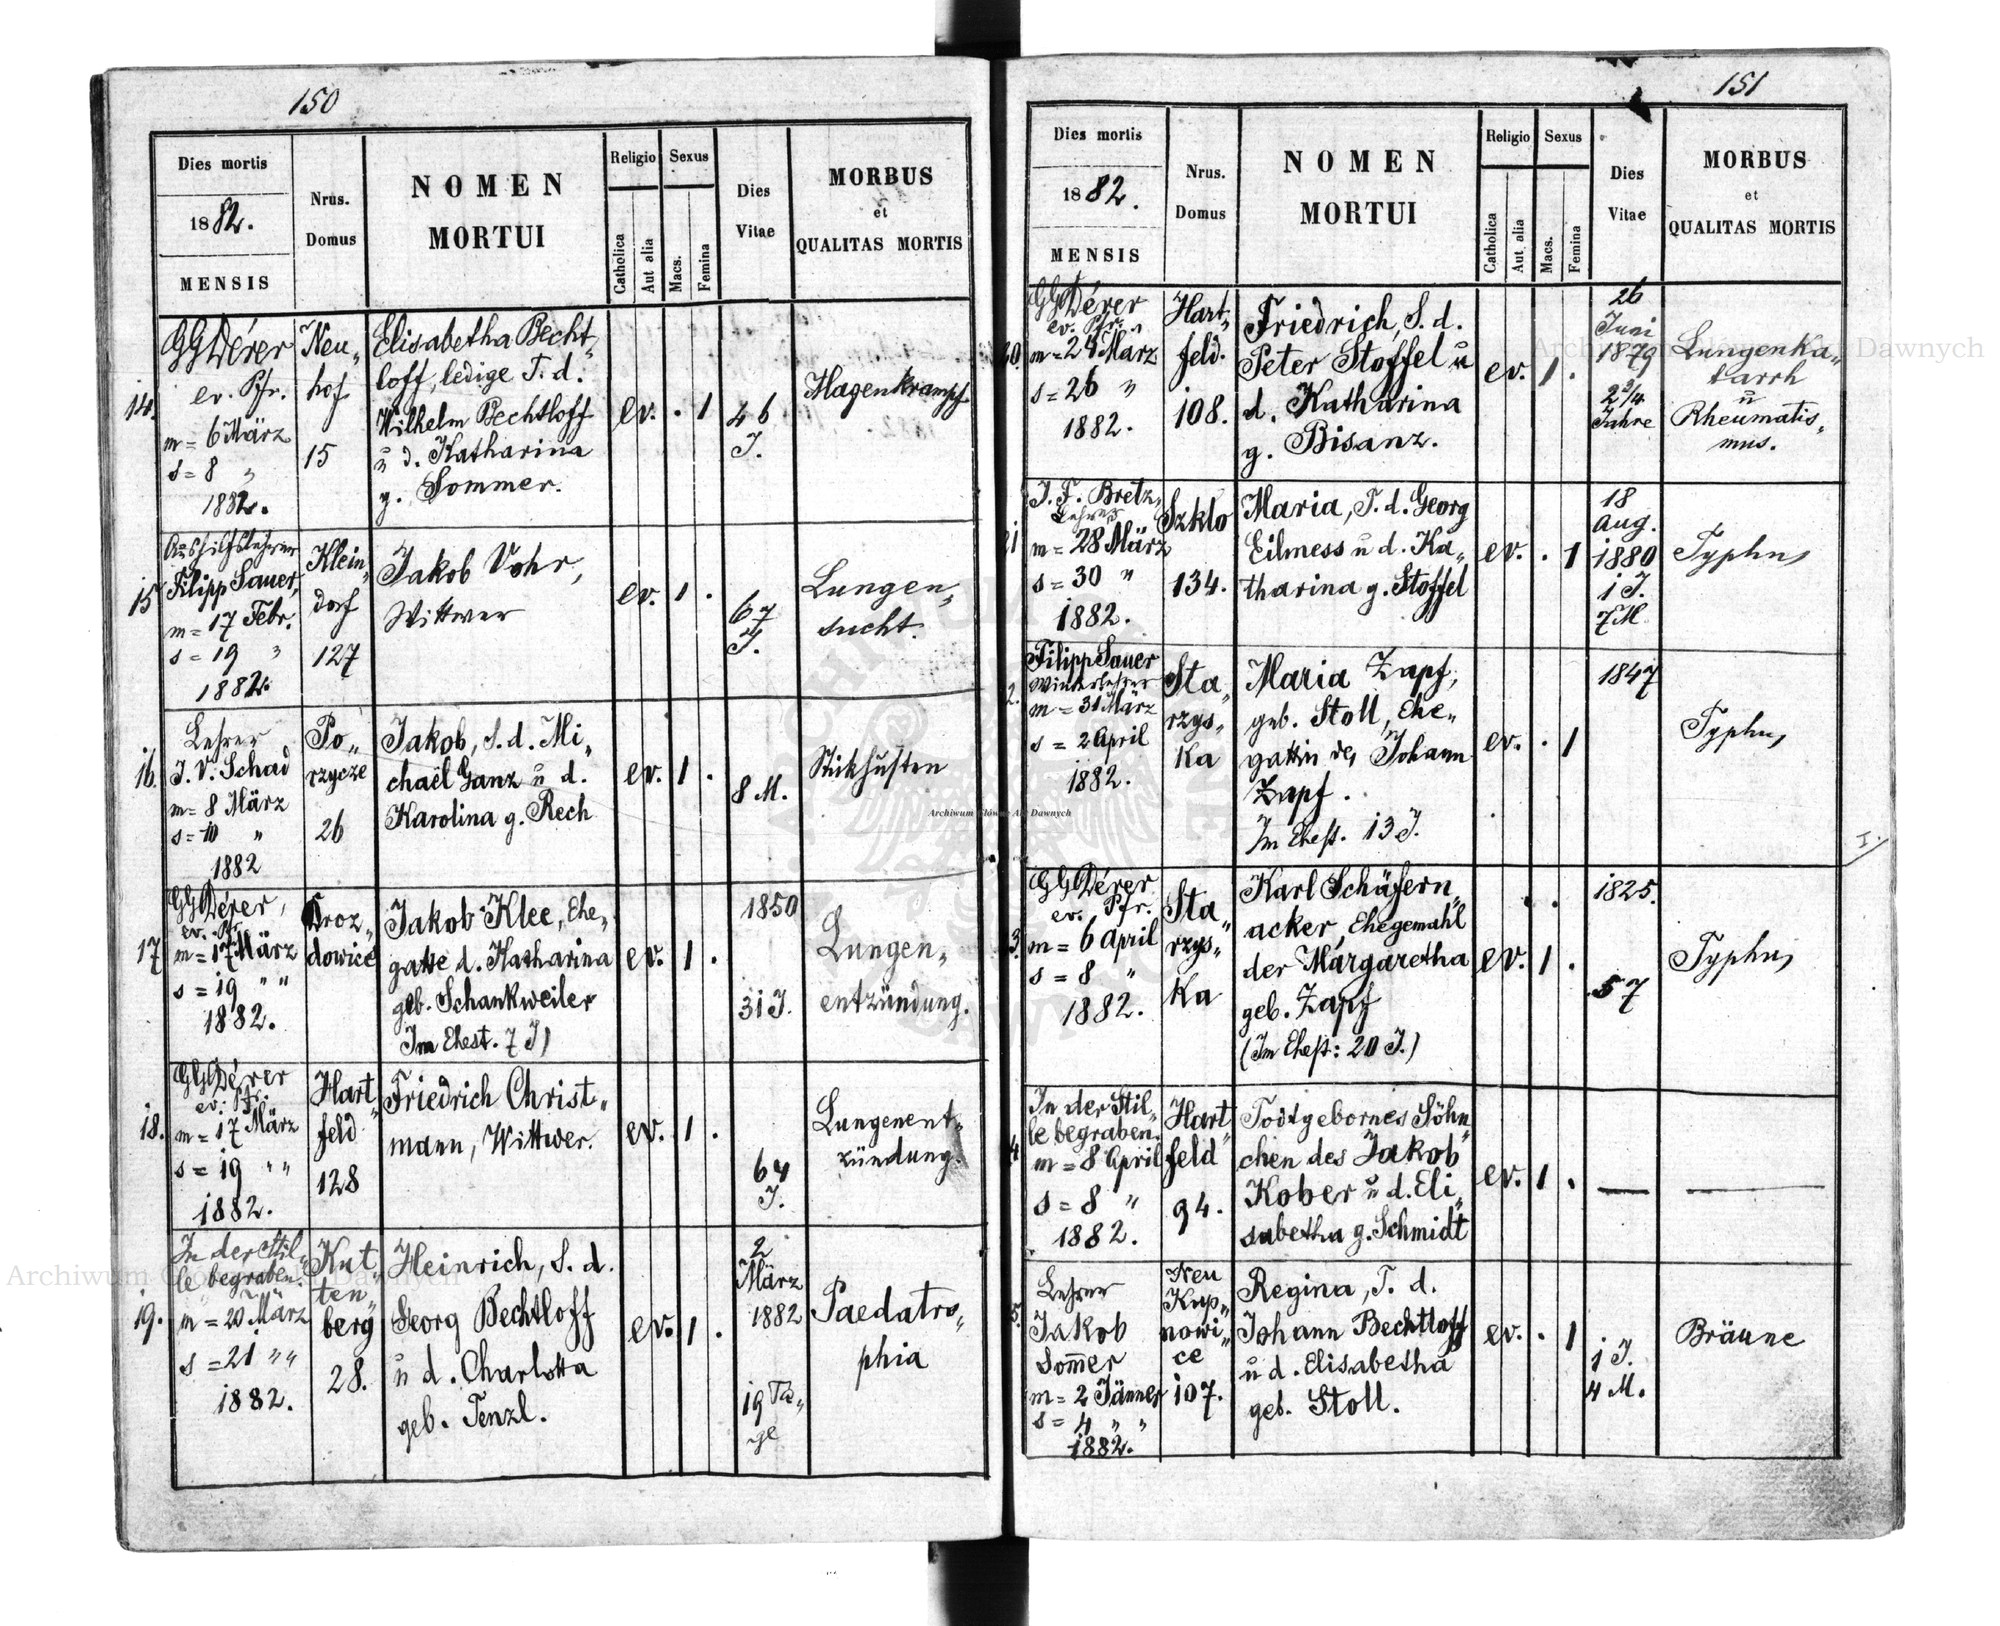 150
Dies mortis
1882.
MENSIS
Nrus.
Domus
NOMEN
MORTUI
Religio
Catholica
Aut alia
Sexus
Macs.
Femina
Dies
Vitae
MORBUS
et
QUALITAS MORTIS
14.
GGDérer
ev. Pfr.
m = 6 März
s = 8 "
1882.
Neu„
hof
15
Elisabetha Becht„
loff, ledige T. d.
Wilhelm Bechtloff
u d. Katharina
g. Sommer.
ev. . 1
46
J.
Magenkrampf
15
Aushilfslehrer
Filipp Sauer,
m = 17 Febr.
s = 19 "
1882.
Klein„
dorf
127
Jakob Vohr,
Wittwer
ev. 1 .
67
J.
Lungen„
sucht.
16.
Lehrer
J. V. Schad
m = 8 März
s = 10 "
1882
Po„
rzycze
26
Jakob, S. d. Mi„
chaël Ganz u d.
Karolina g. Rech
ev. 1 .
8 M.
Stikhusten
17
GGDérer,
ev. Pfr.
m = 17 März
s = 19 " "
1882.
Droz„
dowice
Jakob Klee, Ehe„
gatte d. Katharina
geb. Schankweiler
Im Ehest. 7 J)
ev. 1 .
1850
31 J.
Lungen„
entzündung.
18.
GGDérer
ev. Pfr.
m = 17 März
s = 19 " "
1882.
Hart„
feld
128
Friedrich Christ„
mann, Wittwer.
ev. 1 .
64
J.
Lungenent„
zündung.
19.
In der Stil„
le begraben.
m = 20 März
s = 21 " "
1882.
Kut„
ten„
berg
28.
Heinrich, S. d.
Georg Bechtloff
u d. Charlotta
geb. Tenzl.
ev. 1 .
2
März
1882
19 Ta„
ge
Paedatro„
phia
151
Dies mortis
1882.
MENSIS
Nrus.
Domus
NOMEN
MORTUI
Religio
Catholica
Aut alia
Sexus
Macs.
Femina
Dies
Vitae
MORBUS
et
QUALITAS MORTIS
20.
GGDérer
ev. Pfr.
m = 24 März
s = 26 "
1882.
Hart„
feld.
108.
Friedrich, S. d.
Peter Stoffel u
d. Katharina
g. Bisanz.
ev. 1 .
26
Juni
1879
2 3/4
Jahre
Lungenka„
tarrh
u
Rheumatis„
mus.
21
J. F. Bretz„
Lehrer
m = 28 März
s = 30 "
1882.
Szklo
134.
Maria, T. d. Georg
Eilmess u d. Ka„
tharina g. Stoffel
ev. . 1
18
Aug.
1880
1 J.
7 M.
Typhus
2.
Filipp Sauer
Winterlehrer
m = 31 März
s = 2 April
1882.
Sta„
rzys„
ka
Maria Zapf,
geb. Stoll, Ehe„
gattin des Johann
Zapf.
Im Ehest. 13 J.
ev. . 1
1847
Typhus
I.
3.
GGDérer
ev. Pfr.
m = 6 April
s = 8 "
1882.
Sta„
rzys„
ka
Karl Schäfern„
acker, Ehegemahl
der Margaretha
geb. Zapf
(Im Ehest: 20 J.)
ev. 1 .
1825.
57
Typhus
4
In der Stil„
le begraben.
m = 8 April
s = 8 "
1882.
Hart„
feld
94.
Todtgebornes Söhn„
chen des Jakob
Kober u d. Eli„
sabetha g. Schmidt
ev. 1 .
5.
Lehrer
Jakob
Som̄er
m = 2 Jänner
s = 4 " "
1882.
Neu
Kup„
nowi„
ce
107.
Regina, T. d.
Johann Bechtloff
u d. Elisabetha
geb. Stoll.
ev. . 1
1 J.
4 M.
Bräune
Archiwum Główne Akt Dawnych
Archiwum Główne Akt Dawnych
Archiwum Główne Akt Dawnych